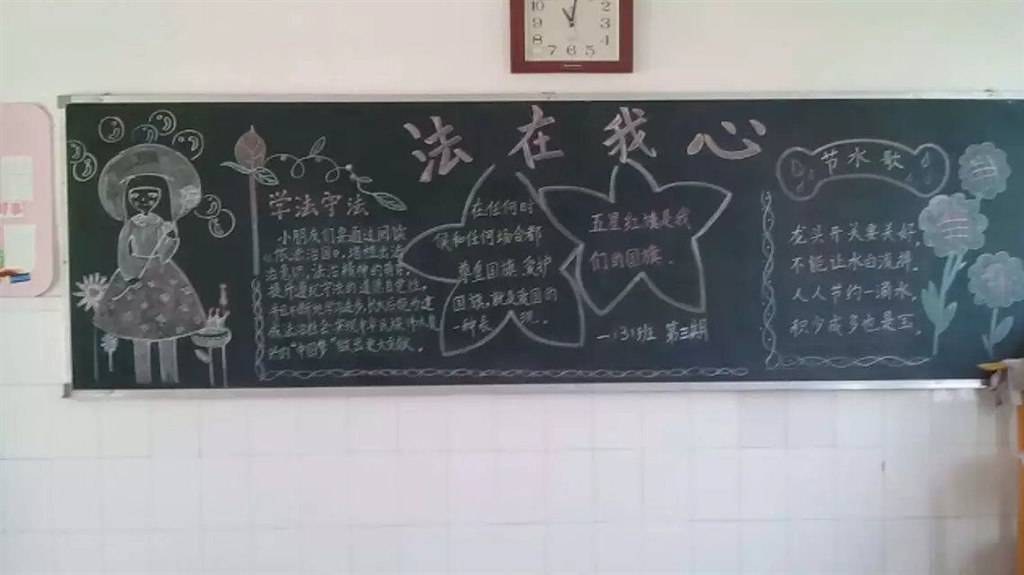 10
2
9
3
8
4
7 6 5
法在我心
学法守法
小朋友们要通过阅读
《依法治国》,培植生活
提升遵纪守法的道德自觉性。
的"中国梦"做出更大贡献。
在任何时
候和任何场合都
尊重国旗、爱护
国旗,就是爱国的
一种表现。
五星红旗是我
们的国旗。
一(3)班 第三期
节水歌
龙头开关要关好,
不能让水白流掉。
人人节约一滴水,
积少成多也是宝。